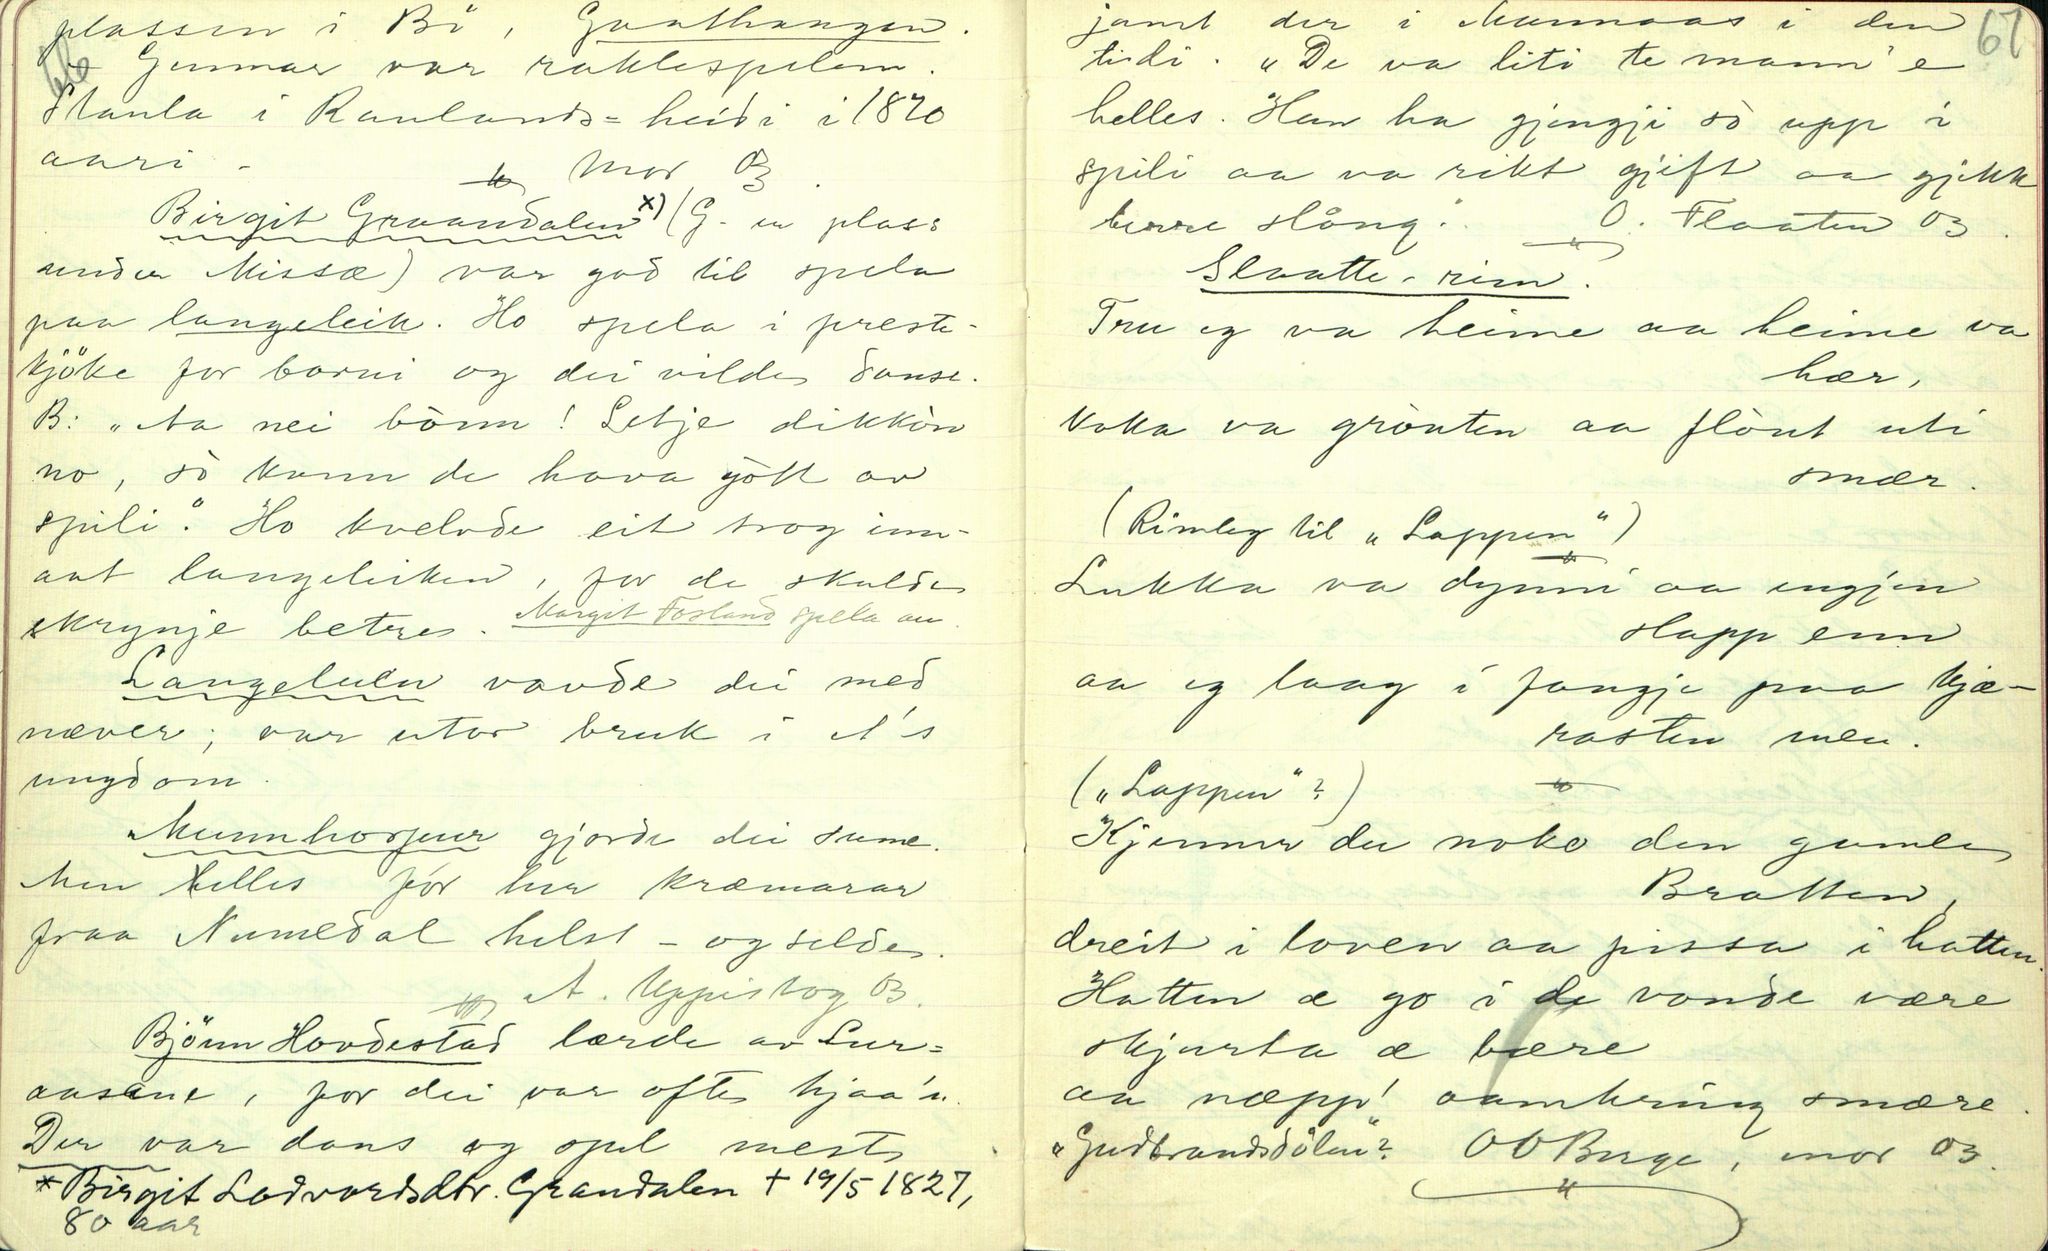 66
plassen i Bø, Gaathaugen.
Gunnar var raklespelem.
Staula i Raulands-heidi i 1820
aari -
Mor 03.
Birgit Graandalen x) (G- ein plass
under Missæ) var god til spela
paa langeleik. Ho spela i preste-
kjöke for borni og dei vilde danse.
B: "Aa nei bönn! Setje dikkòn
no, so kann de hava gòtt av
spili". Ho kvelvde eit trog inn-
aat langeleiken, for de skulde
skrynje betre. Margit Fosland spela au.
Langeleiken vavde dei med
næver; var utor bruk i A's
ungdom.
Munnhorpur gjorde dei sume.
Men helles fór her kræmarar
fraa Numedal helst - og selde.
A. Uppistog 03.
Bjönn Hovdestad lærde av Lur-
aasane, for dei var ofte hjaa'n.
Der var dans og spel mest
* Birgit Ladvardsdtr. Grandalen + 19/5 1827,
80 aar
67
jamt der i Mannaas i den
tidi. "De va liti te mann'e
helles. Han ha gjengji so upp i
spili aa va rikt gjift aa gjekk
berre slång". O. Flaaten 03.
Slaatte-rim.
Tru eg va heime aa heime va
hær,
koka va gròuten aa flòut uti
smær.
(Rimleg til "Lappen")
Lukka va dynni aa ingjen
slapp enn
aa eg laag i fangje paa kjæ-
rasten men.
("Lappen"?)
Kjenner du noko den gamle
Bratten,
dreit i loven aa pissa i hatten.
Hatten æ go i de vonde være
skjurta æ bære
aa næpp' aamkring smære.
"Gudbrandsdölen"? O O Berge, mor 03.